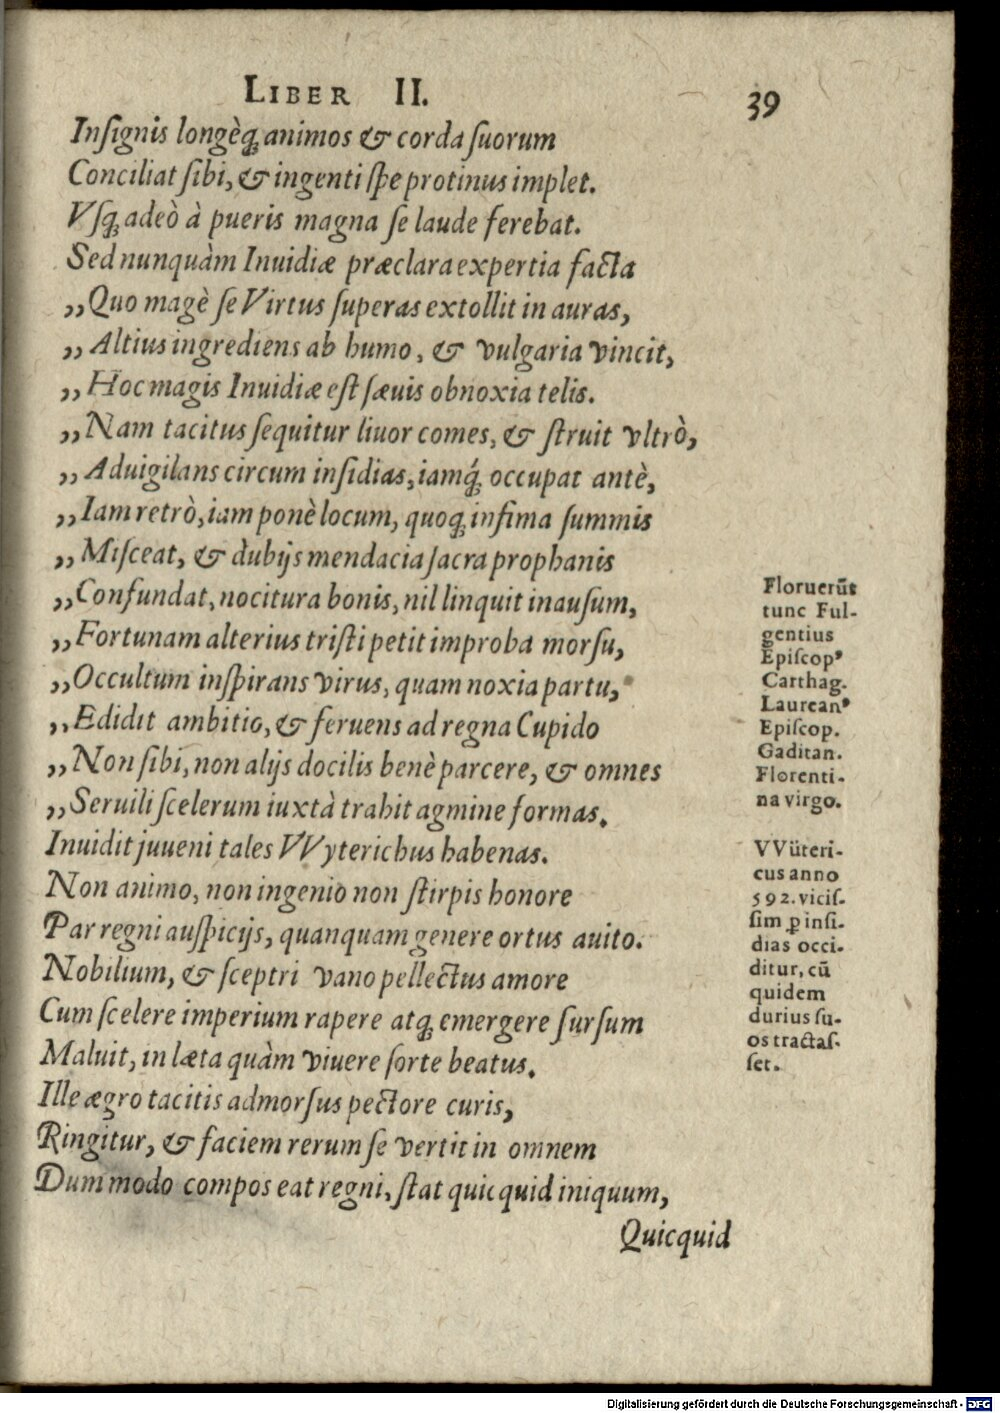 LIBER II. 39
Inſignis longèq́; animos & corda ſuorum
Conciliat ſibi, & ingenti ſpe protinus implet.
Vſq; adeò à pueris magna ſe laude ferebat.
Sed nunquàm Inuidiæ præclara expertia facta
,,Quo magè ſe Virtus ſuperas extollit in auras,
,,Altius ingrediens ab humo, & vulgaria vincit,
,,Hoc magis Inuidiæ eſt ſæuis obnoxia telis.
,,Nam tacitus ſequitur liuor comes, & ſtruit vltrò,
,,Aduigilans circum inſidias, iamq́; occupat antè,
,,Iam retrò, iam ponè locum, quoq; infima ſummis
,,Miſceat, & dubijs mendacia ſacra prophanis
,,Confundat, nocitura bonis, nil linquit inauſum,
,,Fortunam alterius triſti petit improba morſu,
,,Occultum inſpirans virus, quam noxia partu,
,,Edidit ambitio, & feruens ad regna Cupido
,,Non ſibi, non alijs docilis benè parcere, & omnes
,,Seruili ſcelerum iuxtà trahit agmine formas.
Inuidit juueni tales VVyterichus habenas.
Non animo, non ingenio non ſtirpis honore
Par regni auſpicijs, quanquam genere ortus auito.
Nobilium, & ſceptri vano pellectus amore
Cum ſcelere imperium rapere atq; emergere ſurſum
Maluit, in læta quàm viuere ſorte beatus.
Ille ægro tacitis admorſus pectore curis,
Ringitur, & faciem rerum ſe vertit in omnem
Dummodo compos eat regni, ſtat quicquid iniquum,
Quicquid
Floruerũt
tunc Ful-
gentius
Epiſcopꝰ
Carthag.
Laureanꝰ
Epiſcop.
Gaditan.
Florenti-
na virgo.
VVüteri-
cus anno
592. viciſ-
ſim ꝑ inſi-
dias occi-
ditur, cũ
quidem
durius ſu-
os tractaſ-
ſet.
Digitalisierung gefördert durch die Deutsche Forschungsgemeinschaft - DFG